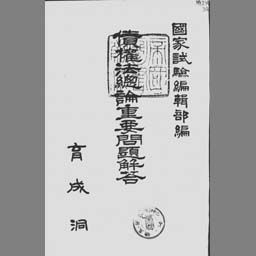 國家試驗編輯部編
債權法總論重要問題解答
育成洞